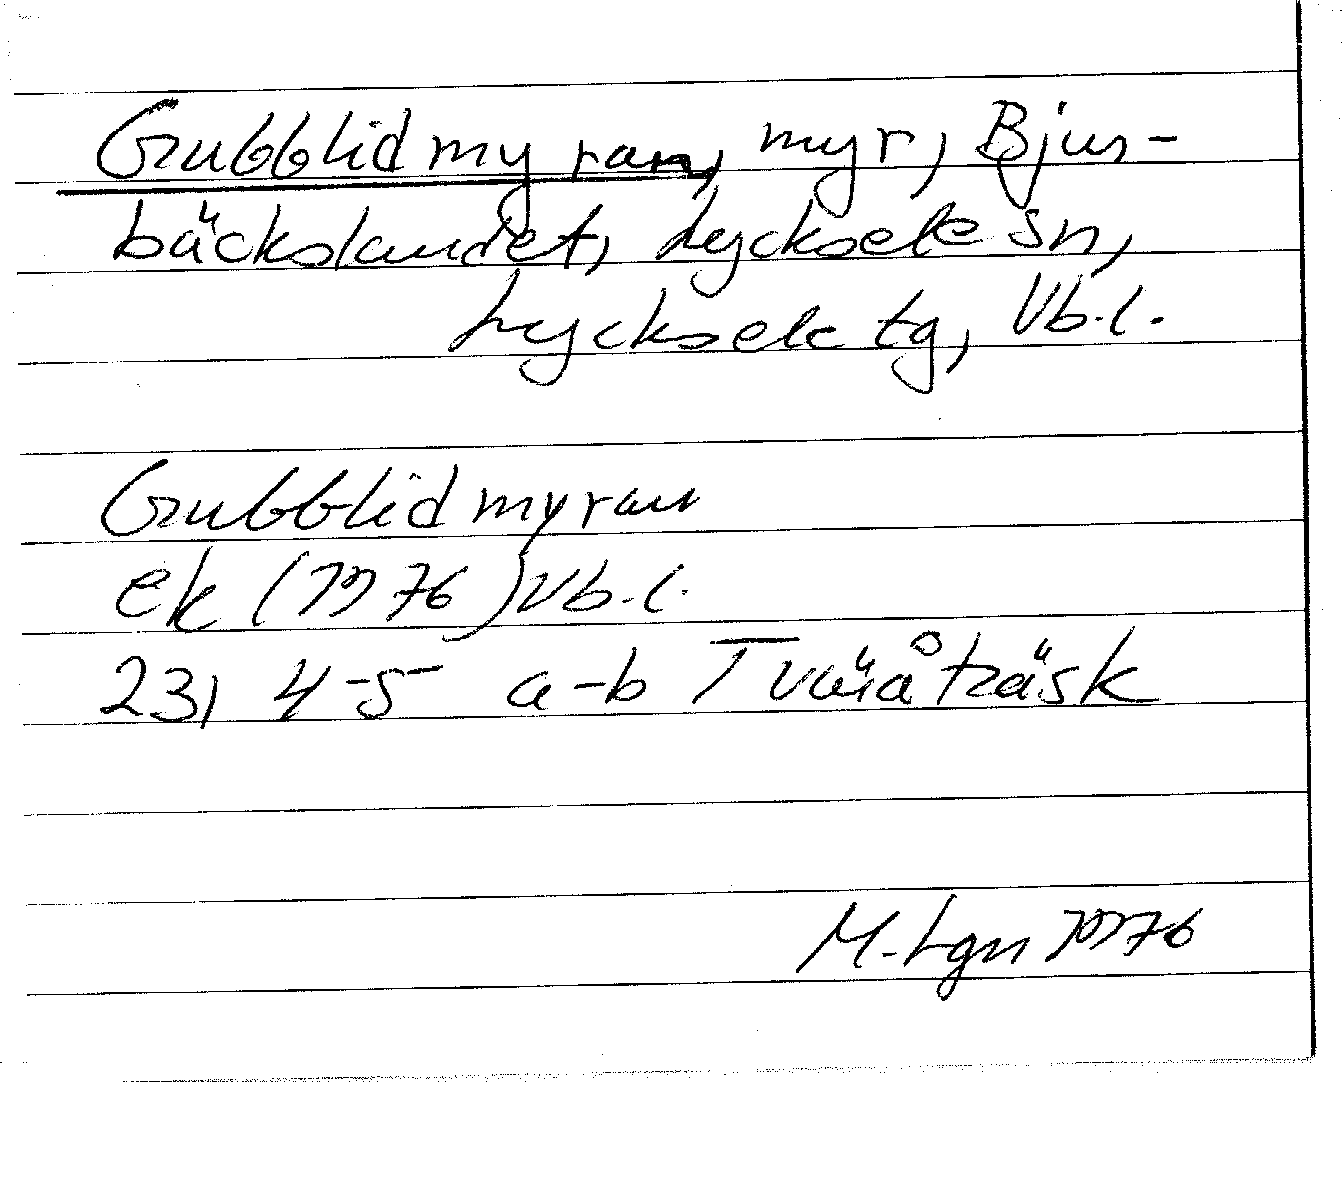 Grubblidmyran, myr, Bjur-
bäckslandet, Lycksele sn,
Lycksele tg, Vb.l.
Grubblidmyran
ek (1976) Vb.l.
23, 4-5 a-b Tväråträsk
M. Lgn 1976